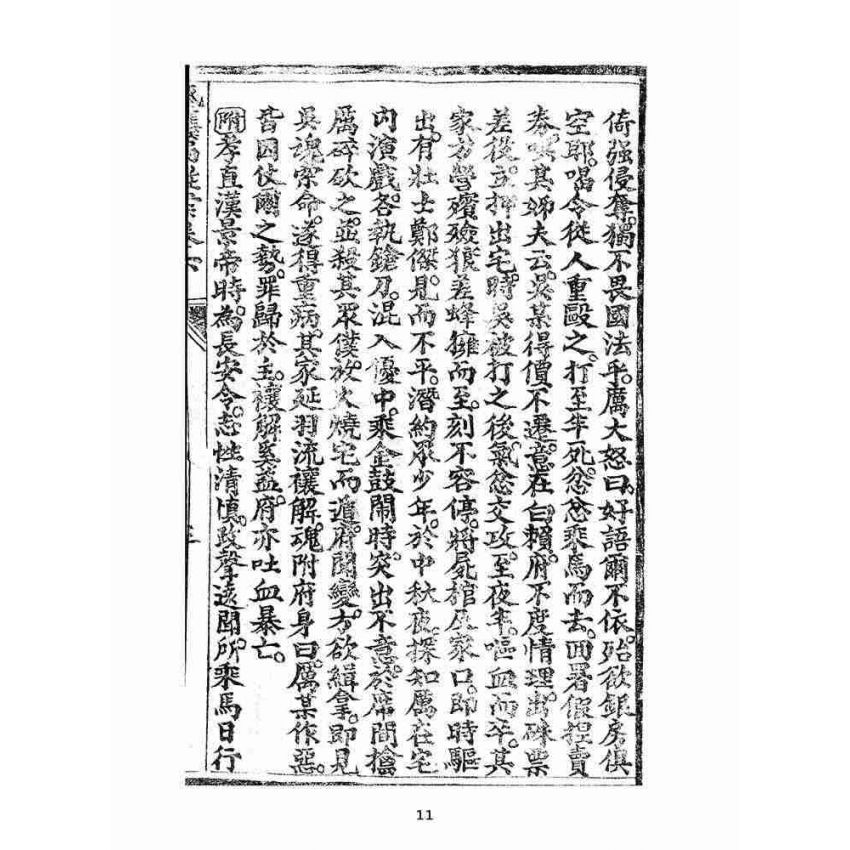 倚强侵奪。獨不畏國法乎。厲大怒曰。好語爾不依。殆欲銀房俱
空耶。喝令從人重毆之。打至半死。忿忿乘馬而去。回署假捏賣
奏。其姊夫云。吳某得價不遷。意在白賴。府不度情理。出硃票
差役。立押出宅。時吳被打之後。氣忿交攻。至夜半。嘔血而卒。其
家方謦殯殮。狼差蜂擁而至。刻不容停。將屍棺及家口。即時驅
出。有壯士鄭傑。見而不平。潛約眾少年。於中秋夜。探知厲在宅
內演戲。各執鎗刀。混入優中。乘金鼓鬧時。突出不意。於席間擒
厲碎砍之。並殺其眾僕。放火燒宅而遁。府聞變。方欲緝拿。即見
吳魂索命。遂得重病。其家延羽流禳解。魂附府身曰。厲某作惡。
皆因仗爾之勢。罪歸於主。禳解奚益。府亦吐血暴亡。
附孝直漢景帝時。為長安令。志性清慎。政聲遠聞。所乘馬日行
11